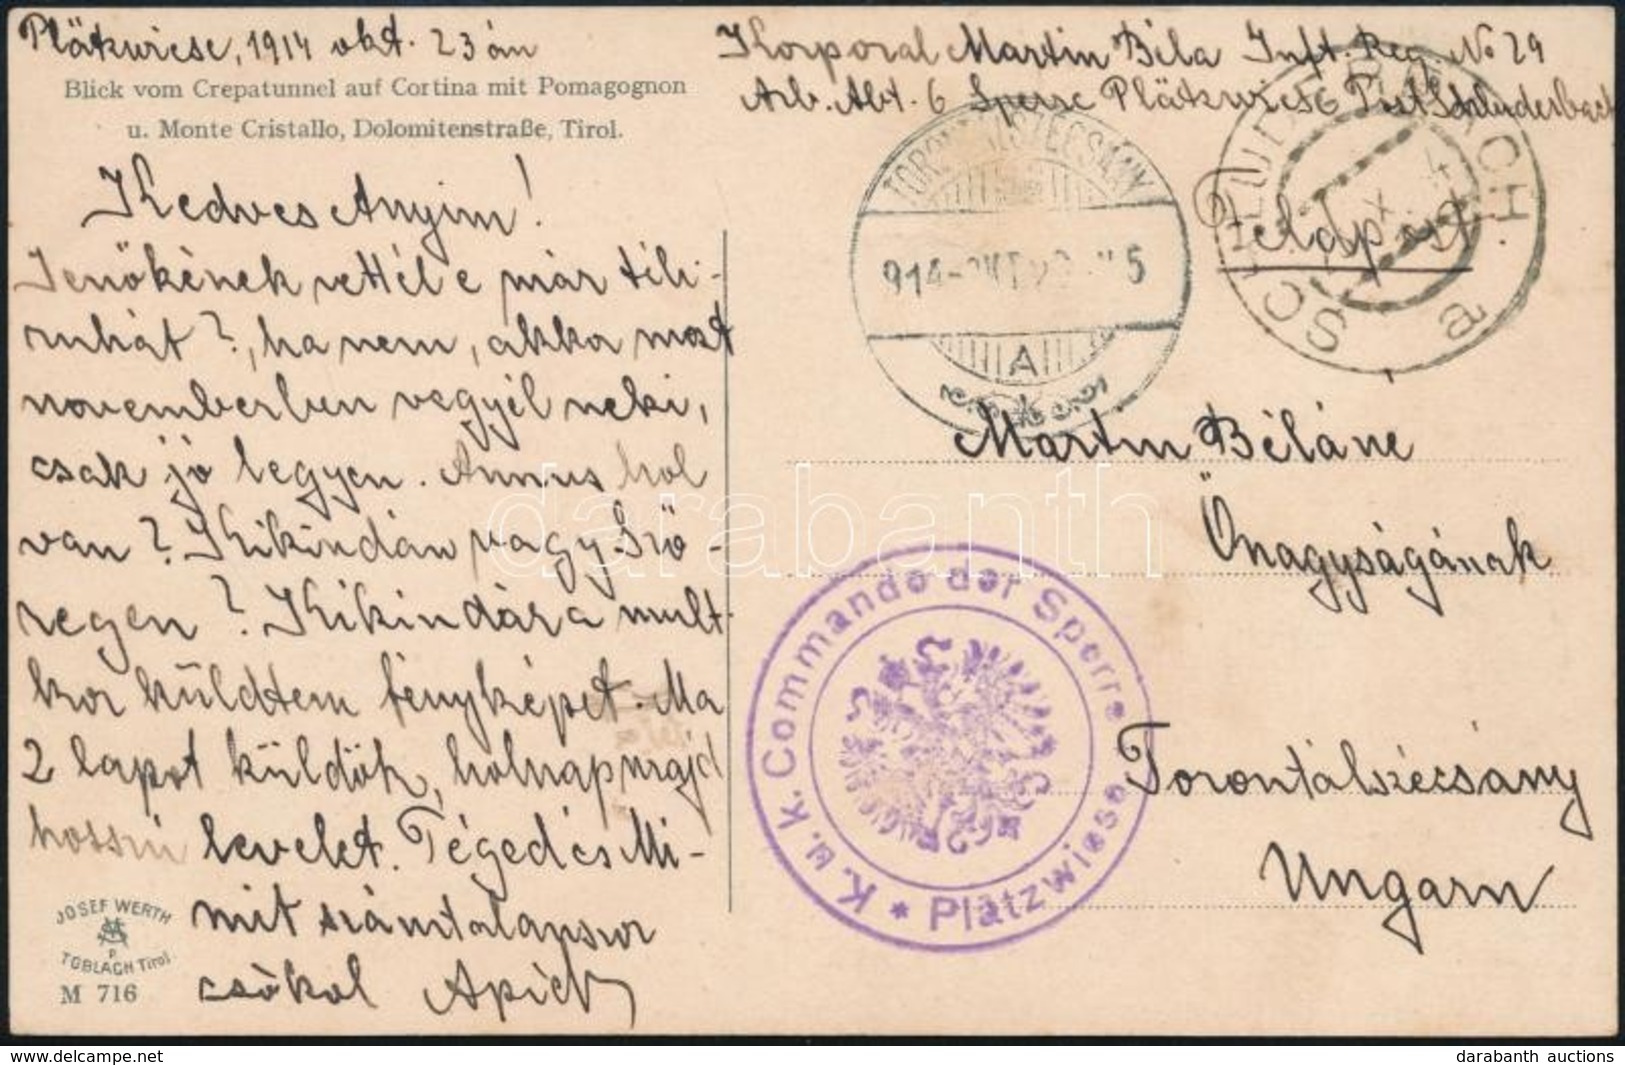 Plätzwiese, 1914 okt. 23 án
Blick vom Crepatunnel auf Cortina mit Pomagognon
u. Monte Cristallo, Dolomitenstraße, Tirol.
Kedves Anyim!
Jenőkének vettél e már téli-
ruhát?, ha nem, akkor most
novemberben vegyél neki,
csak jó legyen. Annus hol
van? Kikindán vagy Sző-
regen? Kikindára mult-
kor küldtem fényképet. Ma
2 lapot küldök, holnap majd
hosszú levelet. Téged és Mi-
mit számtalanszor
csókol Apick
JOSEF WERTH
TOBLACH Tirol
M 716
Korporal Martin Béla Inft. Reg. No 29
Arb. Abt. 6 Sperre Plätzwiese Post Schluderbach
Feldpost.
SCHLUDERBACH
a
914 OKT 5
A
Martin Béláné
Őnagyságának
Torontálszécsány
Ungarn
K. u. k. Commando der Sperre
* Plätzwiese
darabanth
delcampe.net
darabanth auctions